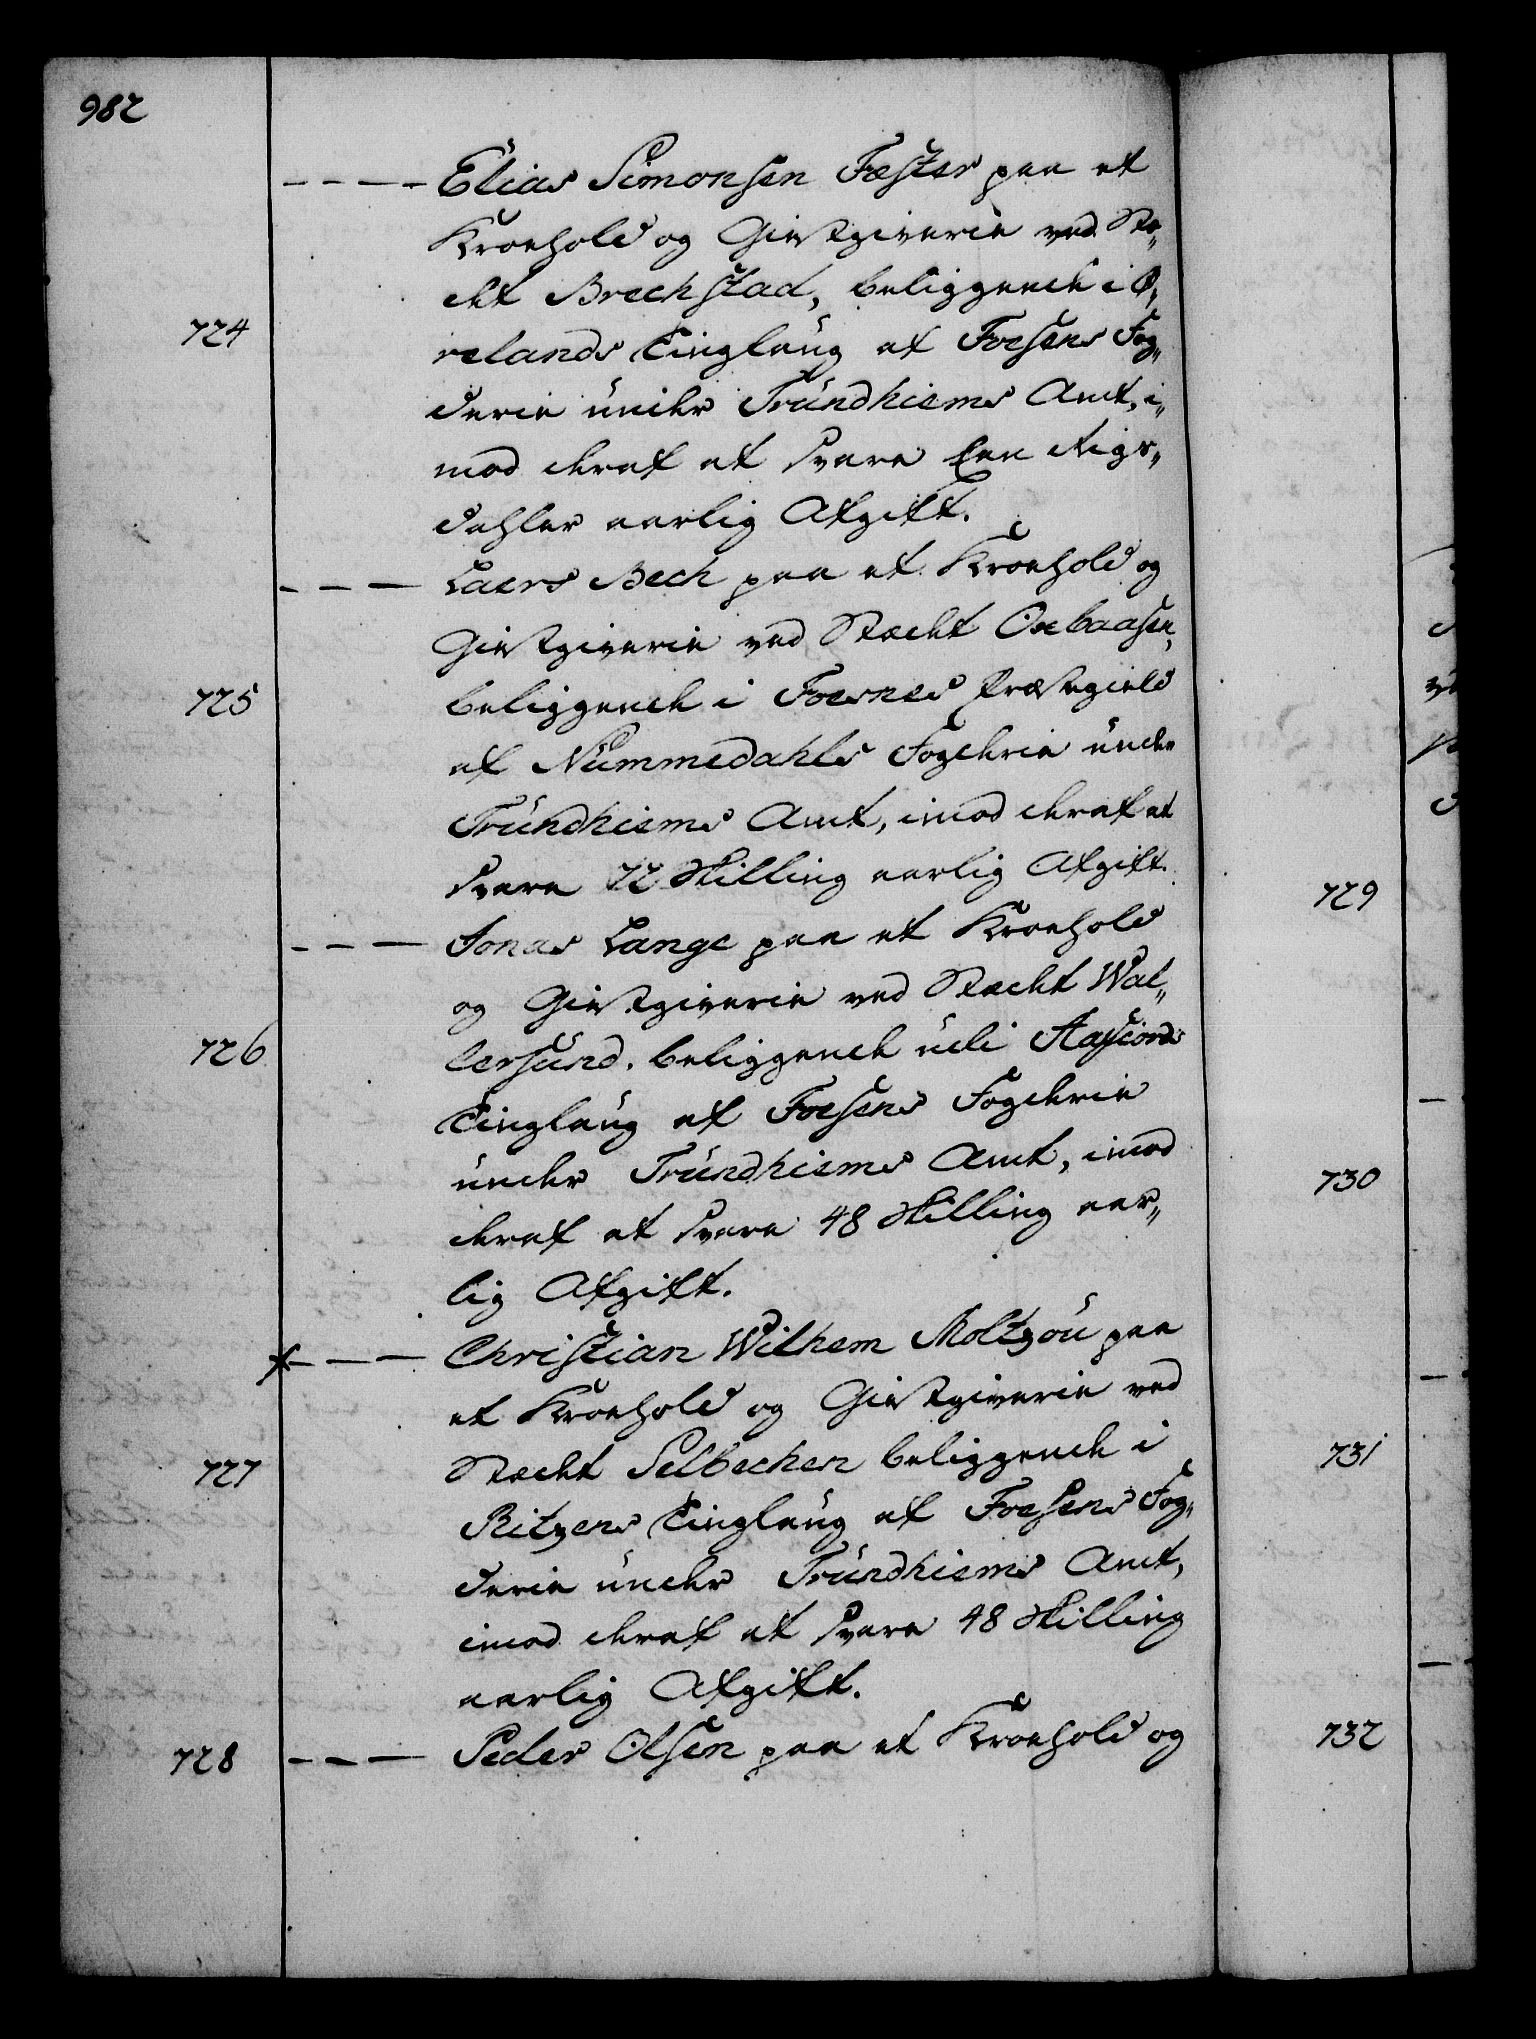 982
Elias Simonsen Fæster paa et
Kroehold og Giestgiverie ved Stæ„
det Brechstad, beliggende i Ø„
724
relands Tinglaug af Foesens Fog„
derie under Trundhiems Amt, i„
mod deraf at svare Een Rigs„
dahler aarlig Afgift.
Laers Bech paa et Kroehold og
Giestgiverie ved Stædet Oxbaasen,
725
beliggende i Foesnes Præstegield
af Nummedahls Fogderie under
Trundhiems Amt, imod deraf at
svare 72 Skilling aarlig Afgift.
Jonas Lange paa et Kroehold
og Giestgiverie ved Stædet Wal„
726
lersund, beliggende udi Aafiords
Tinglaug af Foesens Fogderie
under Trundhiems Amt, imod
deraf at svare 48 Skilling aar„
lig Afgift.
Christian Wilhem Moltzou paa
et Kroehold og Giestgiverie ved
727
Stædet Selbechen beliggende i
Ritzens Tinglaug af Foesens Fog„
derie under Trundhiems Amt,
imod deraf at svare 48 Skilling
aarlig Afgift.
728
Peder Olsen paa et Kroehold og
729
730
731
732